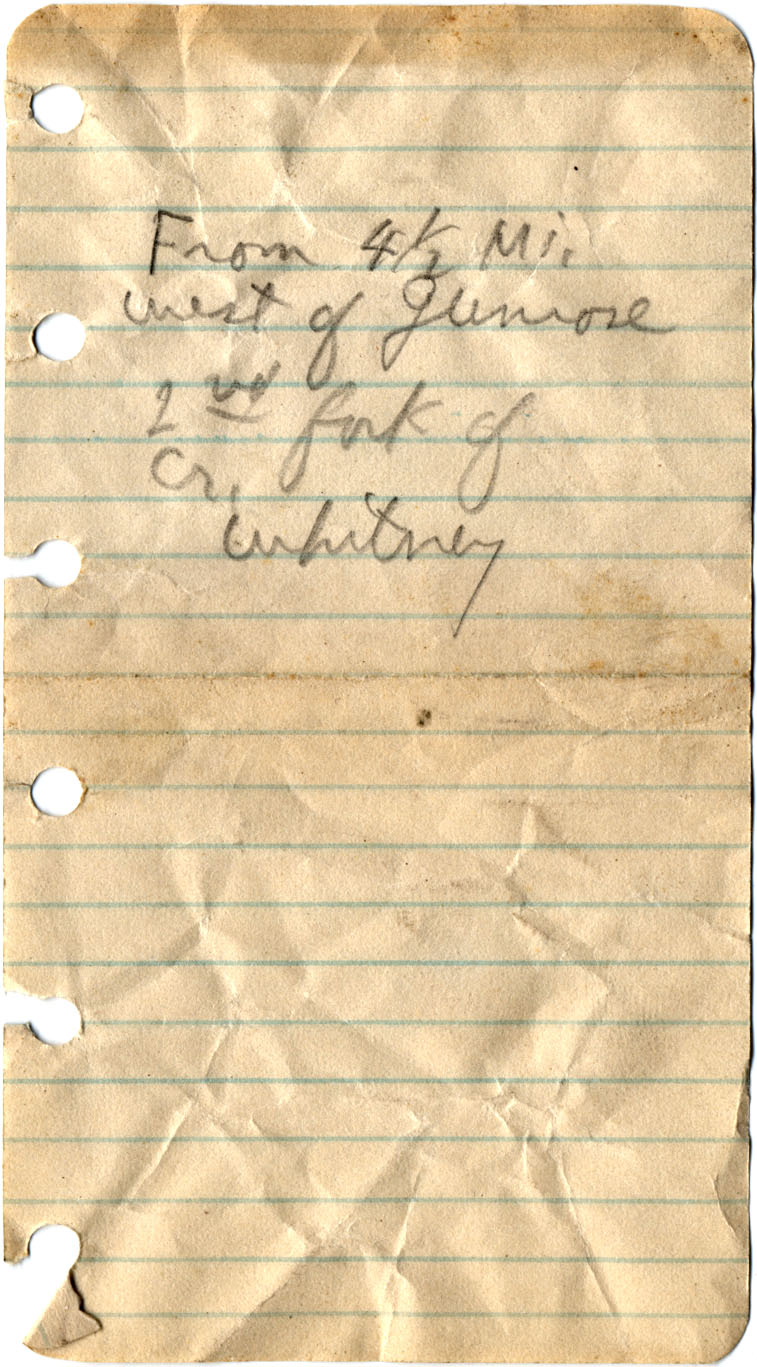 From 4 1/2 Mi.
west of Glenrose
2nd fork of
Cr.
Whitney